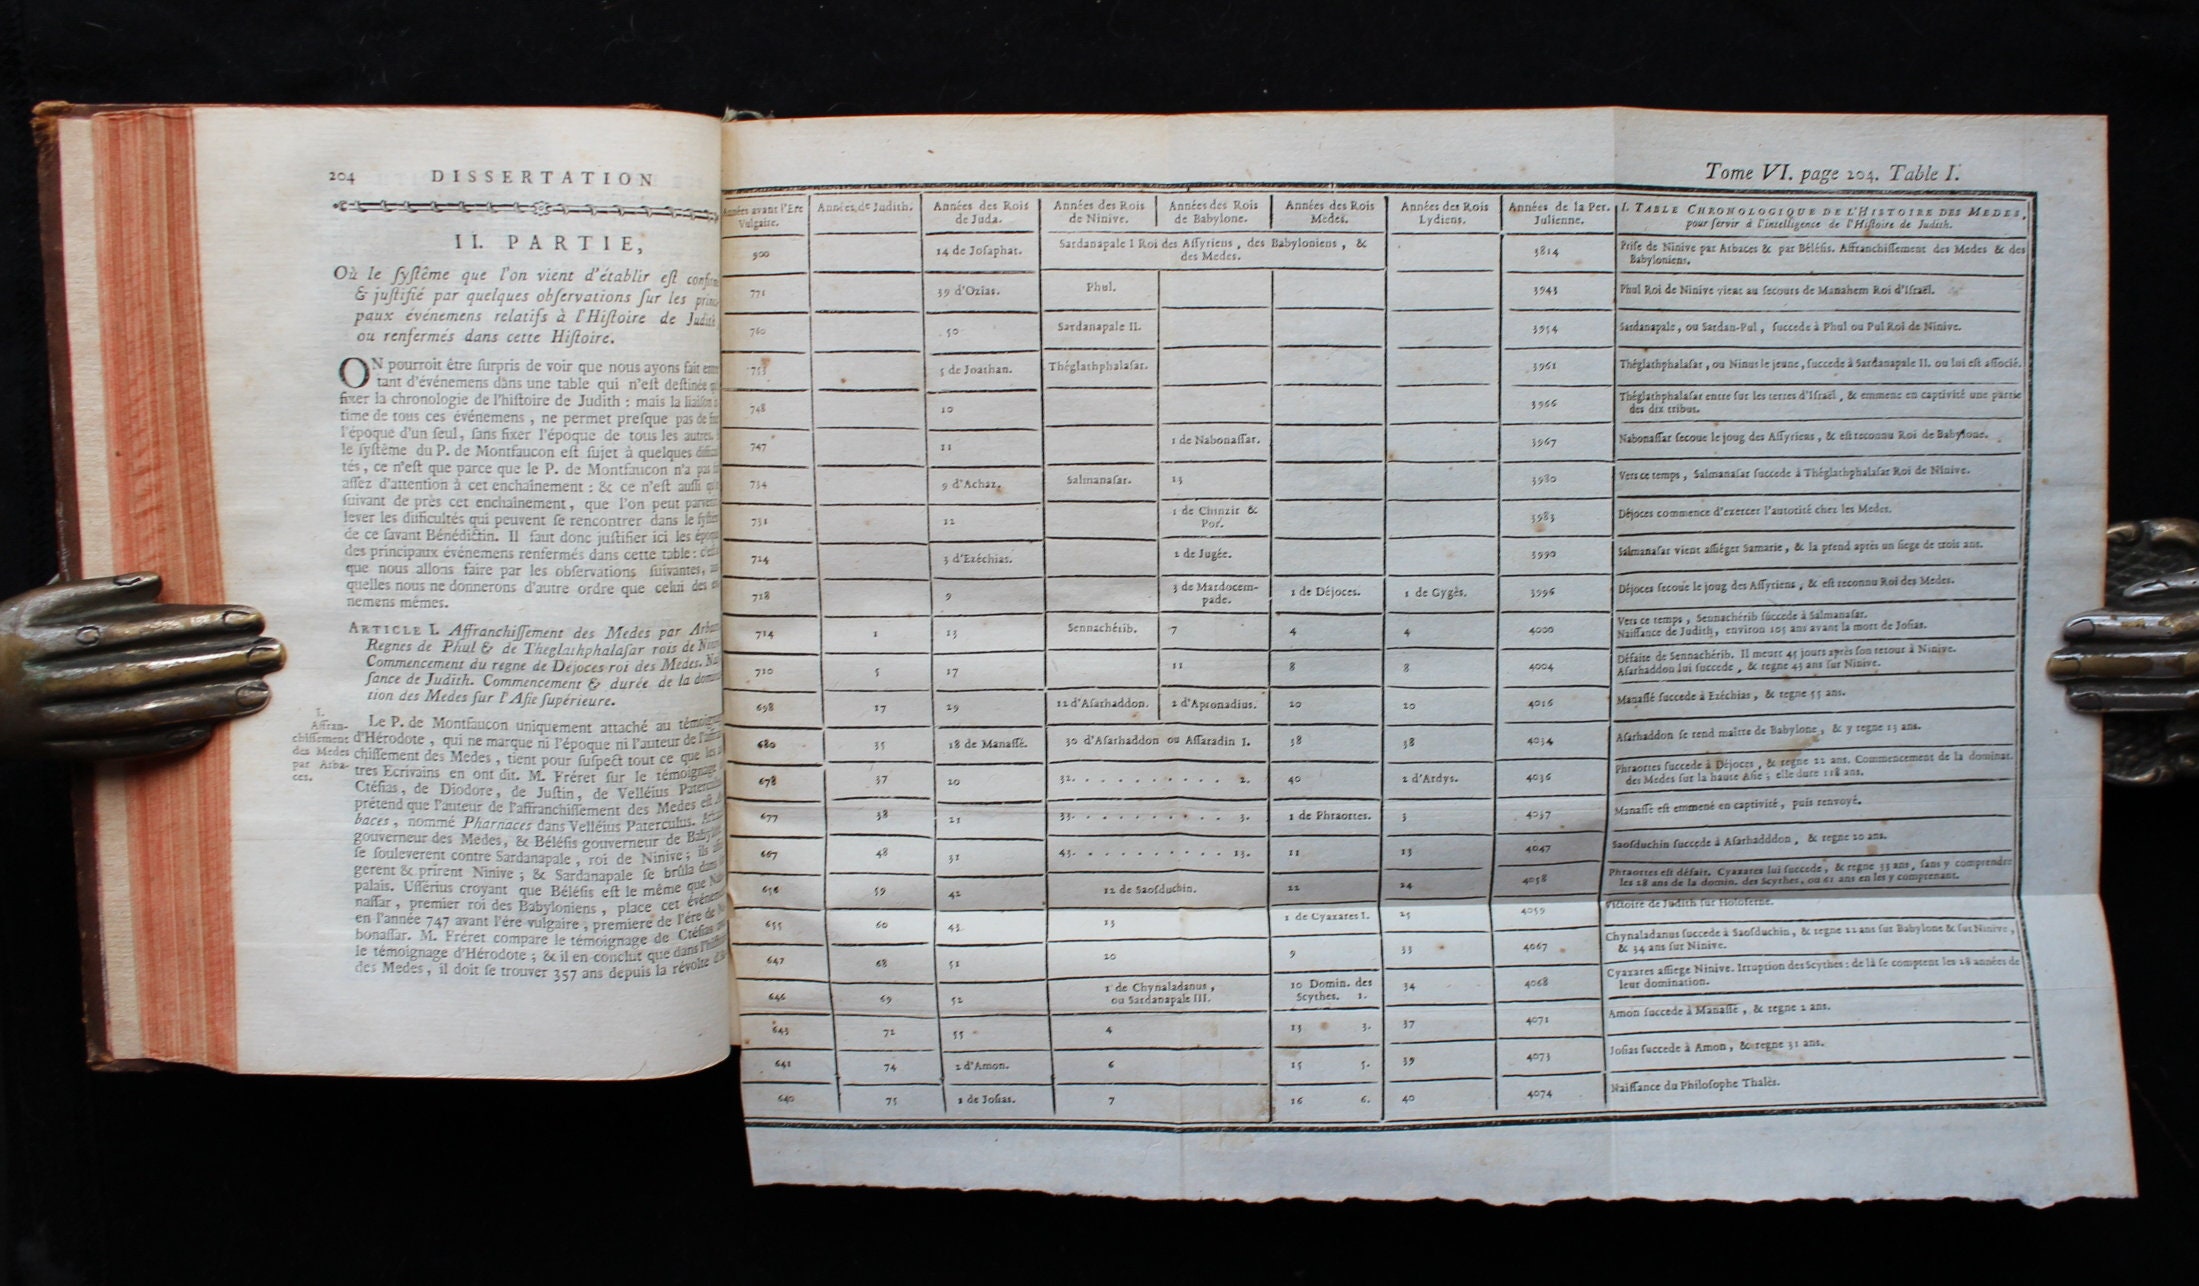 204 DISSERTATION
II. PARTIE,
Où le ſyſtême que l'on vient d'établir eſt
& juſtifié par quelques obſervations ſur les
paux événemens relatifs à l'Hiſtoire de Judith
ou renfermés dans cette Hiſtoire.
ON pourroit être ſurpris de voir que nous ayons fait
tant d'événemens dans une table qui n'eſt deſtinée
fixer la chronologie de l'hiſtoire de Judith : mais la liaiſon
time de tous ces événemens, ne permet preſque pas de
l'époque d'un ſeul, ſans fixer l'époque de tous les autres.
le ſyſtême du P. de Montfaucon eſt ſujet à quelques
tés, ce n'eſt que parce que le P. de Montfaucon n'a pas
aſſez d'attention à cet enchaînement : & ce n'eſt auſſi
ſuivant de près cet enchaînement, que l'on peut
lever les difficultés qui peuvent ſe rencontrer dans le
de ce ſavant Bénédictin. Il faut donc juſtifier ici les
des principaux événemens renfermés dans cette table :
que nous allons faire par les obſervations ſuivantes,
quelles nous ne donnerons d'autre ordre que celui des
nemens mêmes.
ARTICLE I. Affranchiſſement des Medes par
Regnes de Phul & de Theglathphalaſar rois de
Commencement du regne de Déjoces roi des Medes.
ſance de Judith. Commencement & durée de la
tion des Medes ſur l'Aſie ſupérieure.
I.
Affran-
chiſſement
des Medes
par Arba-
ces.
Le P. de Montfaucon uniquement attaché au
d'Hérodote, qui ne marque ni l'époque ni l'auteur de
chiſſement des Medes, tient pour ſuſpect tout ce que les
tres Ecrivains en ont dit. M. Fréret ſur le témoignage
Ctéſias, de Diodore, de Juſtin, de Velléius
prétend que l'auteur de l'affranchiſſement des Medes eſt
baces, nommé Pharnaces dans Velléius Paterculus.
gouverneur des Medes, & Béléſis gouverneur de
ſe ſouleverent contre Sardanapale, roi de Ninive; ils
gerent & prirent Ninive; & Sardanapale ſe brûla dans
palais. Uſſérius croyant que Béléſis eſt le même que
naſſar, premier roi des Babyloniens, place cet
en l'année 747 avant l'ère vulgaire, premiere de l'ére de
bonaſſar. M. Fréret compare le témoignage de Ctéſias
le témoignage d'Hérodote; & il en conclut que dans
des Medes, il doit ſe trouver 357 ans depuis la révolte
Tome VI. page 204. Table I.
Années avant l'Ere Vulgaire. Années de Judith. Années des Rois de Juda. Années des Rois de Ninive. Années des Rois de Babylone. Années des Rois Medes. Années des Rois Lydiens. Années de la Per. Julienne. I. TABLE CHRONOLOGIQUE DE L'HISTOIRE DES MEDES,
pour ſervir à l'intelligence de l'Hiſtoire de Judith.
900 14 de Joſaphat. Sardanapale I Roi des Aſſyriens, des Babyloniens, & des Medes. 3814 Priſe de Ninive par Arbaces & par Béléſis. Affranchiſſement des Medes & des Babyloniens.
771 39 d'Ozias. Phul. 3943 Phul Roi de Ninive vient au ſecours de Manahem Roi d'Iſraël.
760 50 Sardanapale II. 3954 Sardanapale, ou Sardan-Pul, ſuccede à Phul ou Pul Roi de Ninive.
753 5 de Joathan. Théglathphalaſar. 3961 Théglathphalaſar, ou Ninus le jeune, ſuccede à Sardanapale II. ou lui eſt aſſocié.
748 10 3966 Théglathphalaſar entre ſur les terres d'Iſraël, & emmene en captivité une partie des dix tribus.
747 11 1 de Nabonaſſar. 3967 Nabonaſſar ſecoue le joug des Aſſyriens, & eſt reconnu Roi de Babylone.
734 9 d'Achaz. Salmanaſar. 13 3980 Vers ce temps, Salmanaſar ſuccede à Théglathphalaſar Roi de Ninive.
731 12 1 de Chinzir & Por. 3983 Déjoces commence d'exercer l'autorité chez les Medes.
724 3 d'Ezéchias. 2 de Jugée. 3990 Salmanaſar vient aſſiéger Samarie, & la prend après un ſiege de trois ans.
718 9 3 de Mardocem-pade. 1 de Déjoces. 1 de Gygès. 3996 Déjoces ſecoue le joug des Aſſyriens, & eſt reconnu Roi des Medes.
714 1 13 Sennachérib. 7 4 4 4000 Vers ce temps, Sennachérib ſuccede à Salmanaſar.
Naiſſance de Judith, environ 105 ans avant la mort de Joſias.
710 5 17 11 8 8 4004 Défaite de Sennachérib. Il meurt 45 jours après ſon retour à Ninive.
Aſarhaddon lui ſuccede, & regne 43 ans ſur Ninive.
698 17 29 12 d'Aſarhaddon. 2 d'Apronadius. 20 20 4016 Manaſſé ſuccede à Ezéchias, & regne 55 ans.
680 35 18 de Manaſſé. 30 d'Aſarhaddon ou Aſſaradin I. 38 38 4034 Aſarhaddon ſe rend maître de Babylone, & y regne 13 ans.
678 37 20 32. . . . . . . . . . 2. 40 2 d'Ardys. 4036 Phraortes ſuccede à Déjoces, & regne 22 ans. Commencement de la dominat. des Medes ſur la haute Aſie; elle dure 118 ans.
677 38 21 33. . . . . . . . . . 3. 1 de Phraortes. 3 4037 Manaſſé eſt emmené en captivité, puis renvoyé.
667 48 31 43. . . . . . . . . . 13. 11 13 4047 Saoſduchin ſuccede à Aſarhadddon, & regne 20 ans.
656 59 42 12 de Saoſduchin. 22 24 4058 Phraortes eſt défait. Cyaxares lui ſuccede, & regne 33 ans, ſans y comprendre les 28 ans de la domin. des Scythes, ou 61 ans en les y comprenant.
655 60 43. 13 1 de Cyaxares I. 25 4059 Victoire de Judith ſur Holoferne.
647 68 51 20 9 33 4067 Chynaladanus ſuccede à Saoſduchin, & regne 22 ans ſur Babylone & ſur Ninive, & 34 ans ſur Ninive.
646 69 52 1 de Chynaladanus, ou Sardanapale III. 10 Domin. des Scythes. 1. 34 4068 Cyaxares aſſiege Ninive. Irruption des Scythes : de là ſe comptent les 28 années de leur domination.
643 72 55 4 13 3. 37 4071 Amon ſuccede à Manaſſé, & regne 2 ans.
641 74 2 d'Amon. 6 15 5. 39 4073 Joſias ſuccede à Amon, & regne 31 ans.
640 75 1 de Joſias. 7 16 6. 40 4074 Naiſſance du Philoſophe Thalès.